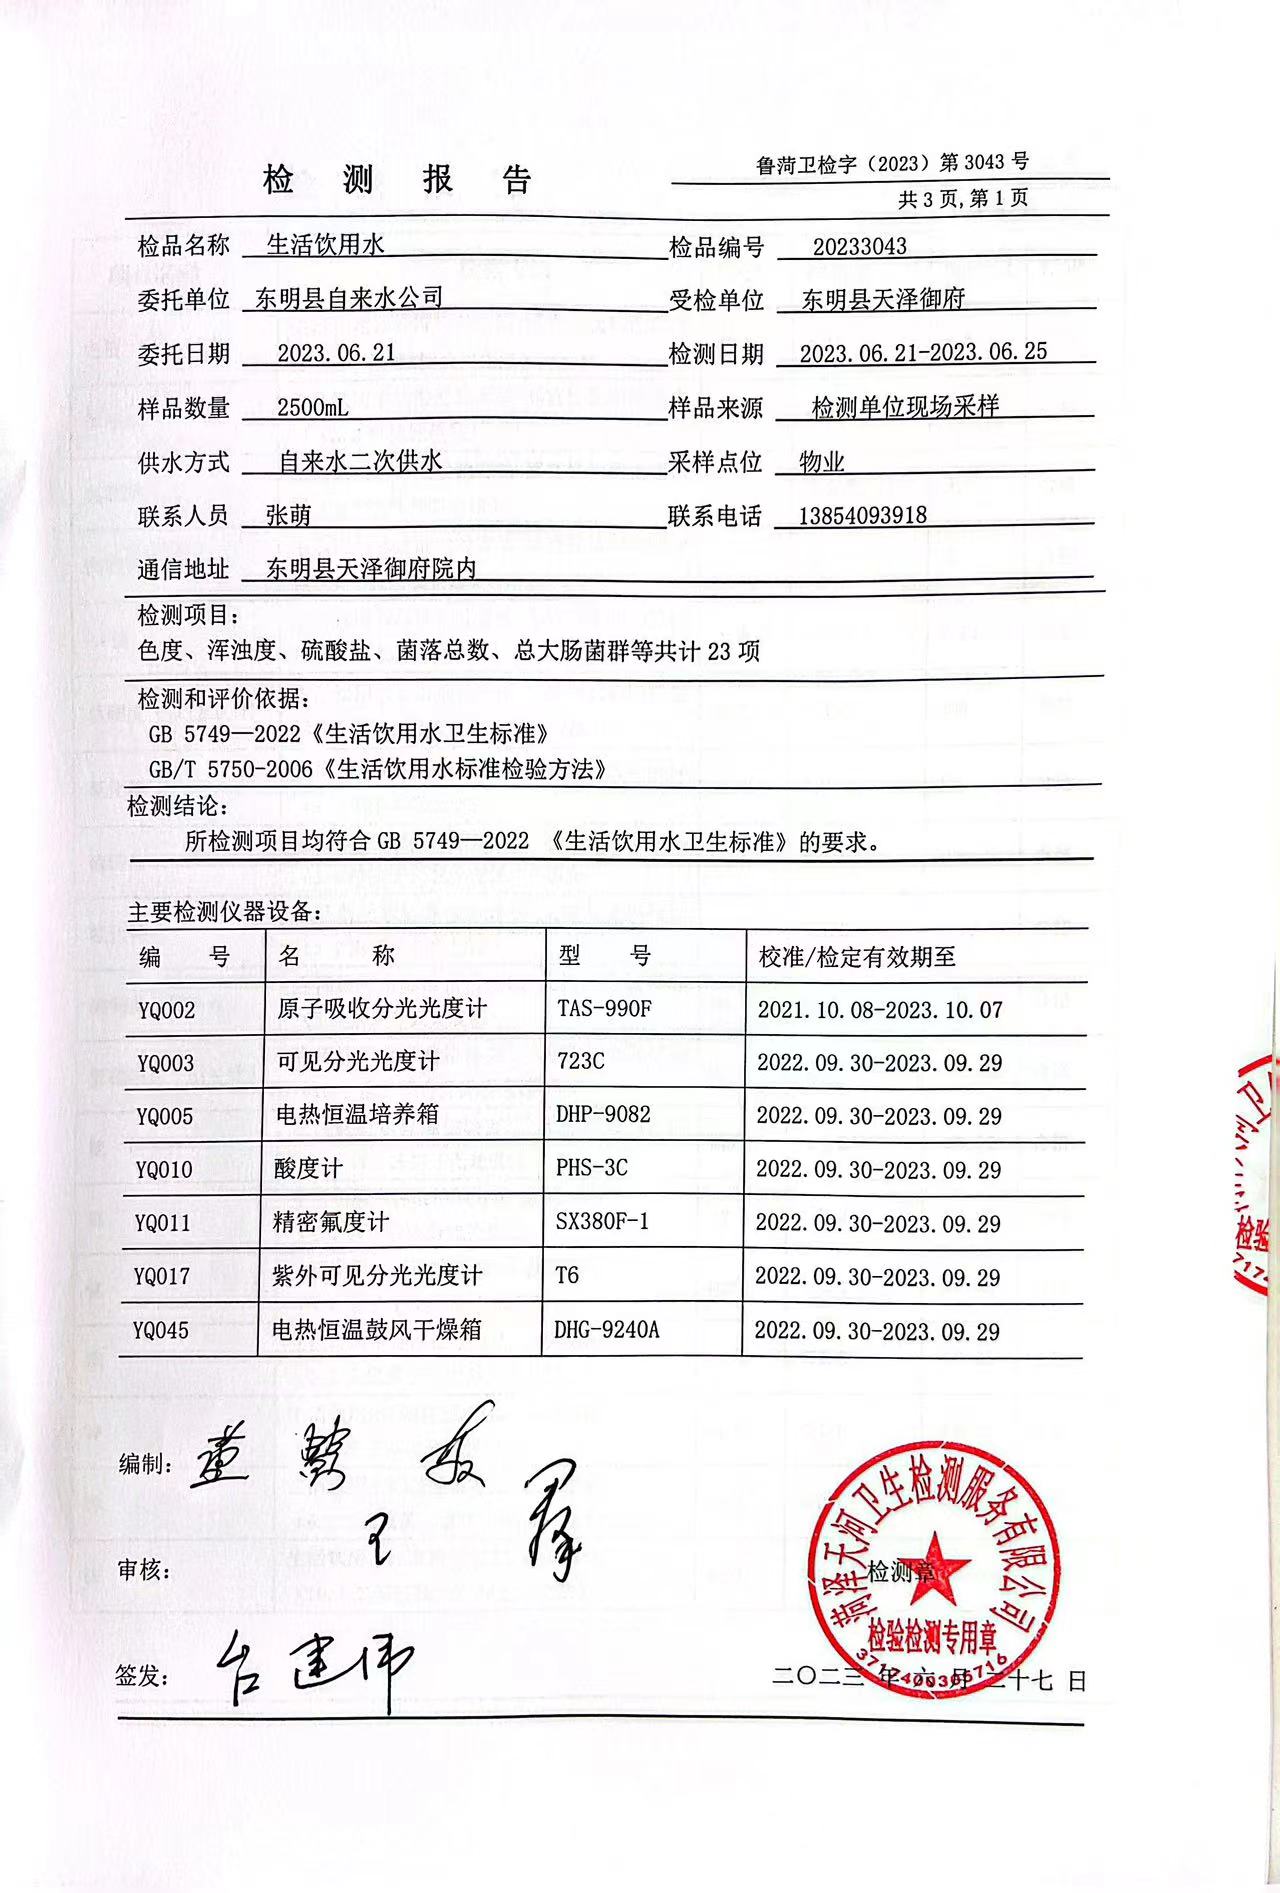 检测报告
鲁菏卫检字（2023）第3043号
共3页,第1页
检品名称 生活饮用水 检品编号 20233043
委托单位 东明县自来水公司 受检单位 东明县天泽御府
委托日期 2023.06.21 检测日期 2023.06.21-2023.06.25
样品数量 2500mL 样品来源 检测单位现场采样
供水方式 自来水二次供水 采样点位 物业
联系人员 张萌 联系电话 13854093918
通信地址 东明县天泽御府院内
检测项目：
色度、浑浊度、硫酸盐、菌落总数、总大肠菌群等共计23项
检测和评价依据：
GB 5749—2022《生活饮用水卫生标准》
GB/T 5750-2006《生活饮用水标准检验方法》
检测结论：
所检测项目均符合GB 5749—2022 《生活饮用水卫生标准》的要求。
主要检测仪器设备：
编 号 名 称 型 号 校准/检定有效期至
YQ002 原子吸收分光光度计 TAS-990F 2021.10.08-2023.10.07
YQ003 可见分光光度计 723C 2022.09.30-2023.09.29
YQ005 电热恒温培养箱 DHP-9082 2022.09.30-2023.09.29
YQ010 酸度计 PHS-3C 2022.09.30-2023.09.29
YQ011 精密氟度计 SX380F-1 2022.09.30-2023.09.29
YQ017 紫外可见分光光度计 T6 2022.09.30-2023.09.29
YQ045 电热恒温鼓风干燥箱 DHG-9240A 2022.09.30-2023.09.29
编制：
审核： 王
签发： 台建伟
菏泽天河卫生检测服务有限公司
检测章
检验检测专用章
3717400305716
二〇二三年六月二十七日
检验